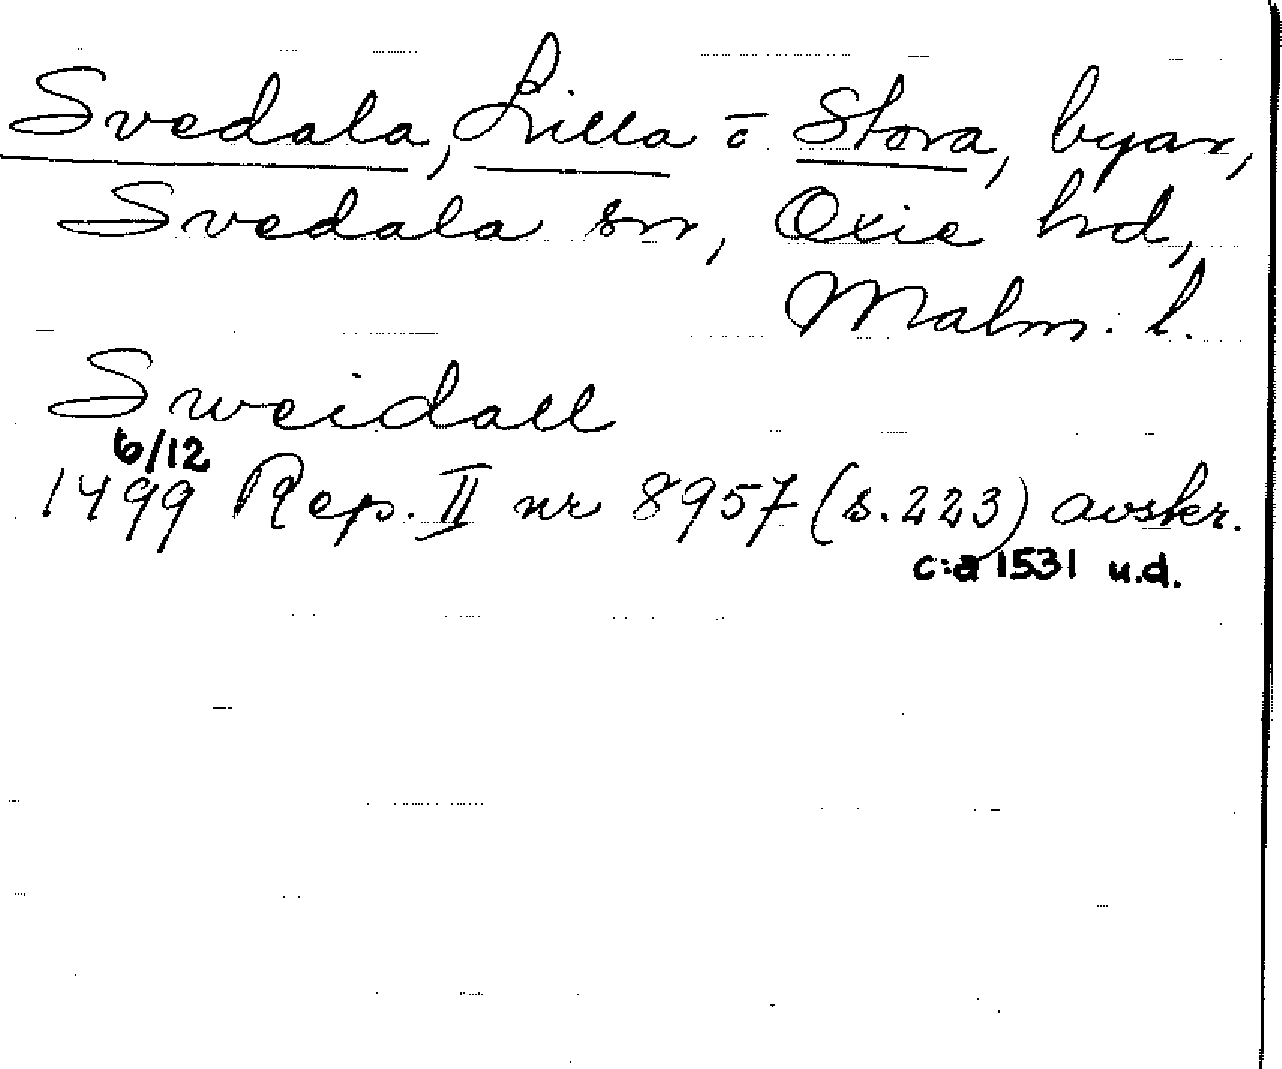 Svedala, Lilla o Stora, byar,
Svedala sn, Oxie hd,
Malm. l.
Sweidall
6/12
1499 Rep. II nr 8957 (s. 223) avskr.
c:a 1531 u.d.